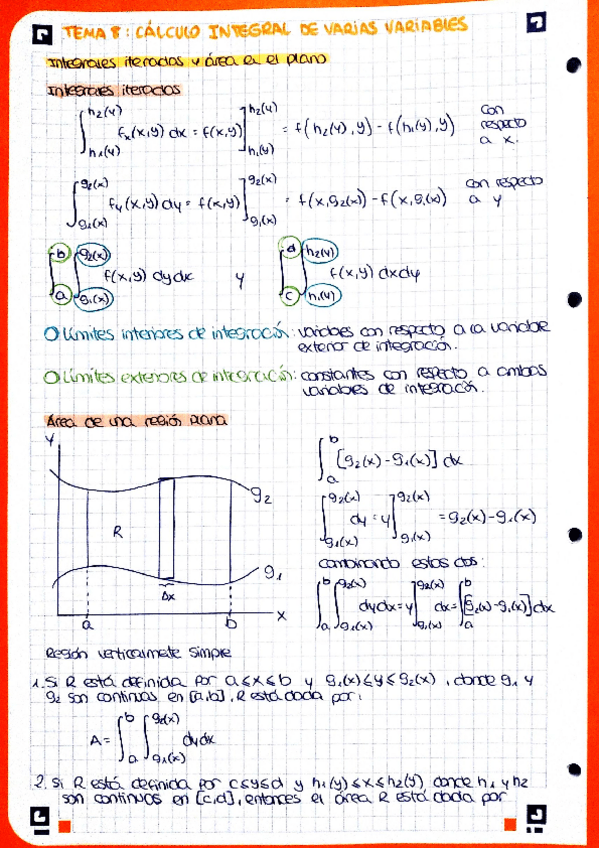 TEMA 8: CÁLCULO INTEGRAL DE VARIAS VARIABLES
Integrales iteradas y área en el plano
Integrales iteradas
∫_{h₁(y)}^{h₂(y)} fₓ(x,y) dx = f(x,y)]_{h₁(y)}^{h₂(y)} = f(h₂(y),y) - f(h₁(y),y) con respecto a x.
∫_{g₁(x)}^{g₂(x)} f_y(x,y) dy = f(x,y)]_{g₁(x)}^{g₂(x)} = f(x,g₂(x)) - f(x,g₁(x)) con respecto a y
∫_a^b ∫_{g₁(x)}^{g₂(x)} f(x,y) dydx y ∫_c^d ∫_{h₁(y)}^{h₂(y)} f(x,y) dxdy
Límites interiores de integración: variables con respecto a la variable
exterior de integración.
Límites exteriores de integración: constantes con respecto a ambas
variables de integración.
Área de una región plana
y
g₂
R
g₁
Δx
x
a b
∫_a^b [g₂(x) - g₁(x)] dx
∫_{g₁(x)}^{g₂(x)} dy = y]_{g₁(x)}^{g₂(x)} = g₂(x) - g₁(x)
combinando estas dos:
∫_a^b ∫_{g₁(x)}^{g₂(x)} dydx = y]_{g₁(x)}^{g₂(x)} dx = ∫_a^b [g₂(x) - g₁(x)] dx
Región verticalmente simple
1. Si R está definida por a≤x≤b y g₁(x)≤y≤g₂(x), donde g₁ y
g₂ son continuas en [a,b], R está dada por:
A = ∫_a^b ∫_{g₁(x)}^{g₂(x)} dydx
2. Si R está definida por c≤y≤d y h₁(y)≤x≤h₂(y) donde h₁ y h₂
son continuas en [c,d], entonces el área R está dada por